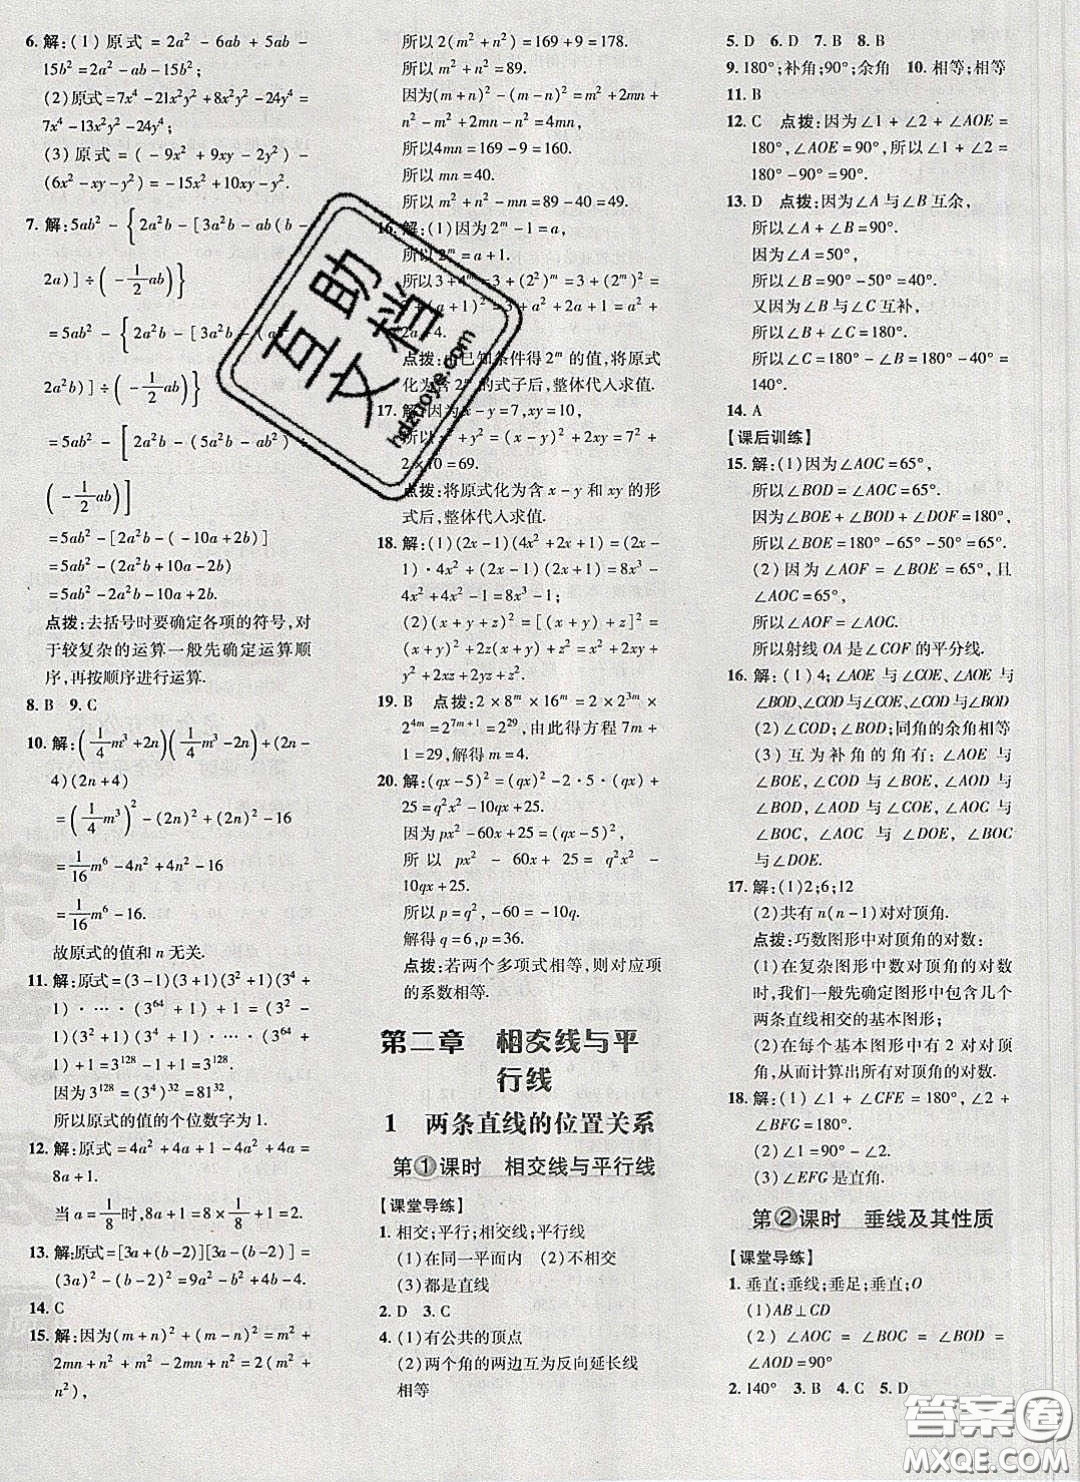 6. 解:(1)原式=2a²-6ab+5ab-
15b²=2a²-ab-15b²;
(2)原式=7x⁴-21x²y²+8x²y²-24y⁴=
7x⁴-13x²y²-24y⁴;
(3)原式=(-9x²+9xy-2y²)-
(6x²-xy-y²)=-15x²+10xy-y².
7. 解:5ab²-{2a²b-[3a²b-ab(b-
2a)]÷(-1/2ab)}
=5ab²-{2a²b-[3a²b-(ab²-
2a²b)]÷(-1/2ab)}
=5ab²-[2a²b-(5a²b-ab²)÷
(-1/2ab)]
=5ab²-[2a²b-(-10a+2b)]
=5ab²-(2a²b+10a-2b)
=5ab²-2a²b-10a+2b.
点拨:去括号时要确定各项的符号,对
于较复杂的运算一般先确定运算顺
序,再按顺序进行运算.
8. B 9. C
10. 解:(1/4m³+2n)(1/4m³-2n)+(2n-
4)(2n+4)
=(1/4m³)²-(2n)²+(2n)²-16
=1/16m⁶-4n²+4n²-16
=1/16m⁶-16.
故原式的值和n无关.
11. 解:原式=(3-1)(3+1)(3²+1)(3⁴+
1)·…·(3⁶⁴+1)+1=(3²-1)(3²+
1)(3⁴+1)·…·(3⁶⁴+1)+1=(3¹²⁸-
1)+1=3¹²⁸-1+1=3¹²⁸.
因为3¹²⁸=(3⁴)³²=81³²,
所以原式的值的个位数字为1.
12. 解:原式=4a²+4a+1-4a²+4a=
8a+1.
当a=1/8时,8a+1=8×1/8+1=2.
13. 解:原式=[3a+(b-2)][3a-(b-2)]=
(3a)²-(b-2)²=9a²-b²+4b-4.
14. C
15. 解:因为(m+n)²+(m-n)²=m²+
2mn+n²+m²-2mn+n²=2(m²+
n²),
所以2(m²+n²)=169+9=178.
所以m²+n²=89.
因为(m+n)²-(m-n)²=m²+2mn+
n²-m²+2mn-n²=4mn,
所以4mn=169-9=160.
所以mn=40.
所以m²+n²-mn=89-40=49.
16. 解:(1)因为2ᵐ-1=a,
所以2ᵐ=a+1.
所以3+4ᵐ=3+(2²)ᵐ=3+(2ᵐ)²=
3+(a+1)²=3+a²+2a+1=a²+
2a+4.
点拨:由已知条件得2ᵐ的值,将原式
化为含2ᵐ的式子后,整体代入求值.
17. 解:因为x-y=7,xy=10,
所以x²+y²=(x-y)²+2xy=7²+
2×10=69.
点拨:将原式化为含x-y和xy的形
式后,整体代入求值.
18. 解:(1)(2x-1)(4x²+1)=(2x-
1)·4x²+(2x-1)(2x+1)=8x³-
4x²+4x²-1=8x³-1;
(2)(x+y+z)²=[(x+y)+z]²=
(x+y)²+2z(x+y)+z²=x²+y²+
z²+2xz+2yz+2xy.
19. B 点拨:2×8ᵐ×16ᵐ=2×2³ᵐ×
2⁴ᵐ=2⁷ᵐ⁺¹=2²⁹,由此得方程7m+
1=29,解得m=4.
20. 解:(qx-5)²=(qx)²-2·5·(qx)+
25=q²x²-10qx+25.
因为px²-60x+25=(qx-5)²,
所以px²-60x+25=q²x²-
10qx+25.
所以p=q²,-60=-10q.
解得q=6,p=36.
点拨:若两个多项式相等,则对应项
的系数相等.
第二章 相交线与平
行线
1 两条直线的位置关系
第①课时 相交线与平行线
【课堂导练】
1. 相交;平行;相交线;平行线
(1)在同一平面内 (2)不相交
(3)都是直线
2. D 3. C
4. (1)有公共的顶点
(2)两个角的两边互为反向延长线
相等
5. D 6. D 7. B 8. B
9. 180°;补角;90°;余角 10. 相等;相等
11. B
12. C 点拨:因为∠1+∠2+∠AOE=
180°,∠AOE=90°,所以∠1+∠2=
180°-90°=90°.
13. D 点拨:因为∠A与∠B互余,
所以∠A+∠B=90°.
因为∠A=50°,
所以∠B=90°-50°=40°.
又因为∠B与∠C互补,
所以∠B+∠C=180°.
所以∠C=180°-∠B=180°-40°=
140°.
14. A
【课后训练】
15. 解:(1)因为∠AOC=65°,
所以∠BOD=∠AOC=65°.
因为∠BOE+∠BOD+∠DOF=180°,
所以∠BOE=180°-65°-50°=65°.
(2)因为∠AOF=∠BOE=65°,
∠AOC=65°,
所以∠AOF=∠AOC.
所以射线OA是∠COF的平分线.
16. 解:(1)4;∠AOE与∠AOC、∠AOE与
∠BOD、∠BOE与∠AOC、∠BOE与∠BOD
(2)∠COD;∠BOE;同角的余角相等
(3)互为补角的角有:∠AOE与
∠BOE、∠COD与∠BOE、∠COD与
∠DOE、∠BOD与∠AOD、∠AOC与
∠BOC、∠AOC与∠AOD、∠BOC与
∠BOD、∠AOE与∠COD、∠AOE与
∠DOE.
17. 解:(1)2;6;12
(2)共有n(n-1)对对顶角.
点拨:巧数图形中对顶角的对数:
(1)在复杂图形中数对顶角的对数
时,我们一般先确定图形中包含几个
两条直线相交的基本图形;
(2)在每个基本图形中有2对对顶
角,从而计算出所有对顶角的对数.
18. 解:(1)∠1+∠CFE=180°,∠2+
∠BFG=180°;
(2)∠1=∠2.
(3)∠EFG是直角.
第②课时 垂线及其性质
【课堂导练】
1. 垂直;垂线;垂足;垂直;O
(1)AB⊥CD
(2)∠AOC=∠BOC=∠BOD=
∠AOD=90°
2. 140° 3. B 4. C 5. D
互助文档
hdzuoye.com
答案圈
MXQE.COM